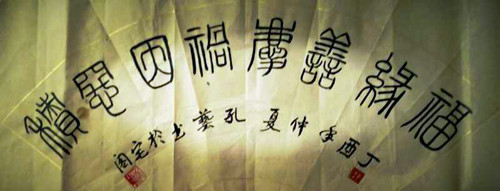 福緣善慶禍因惡積
丁酉年仲夏孔藝书於